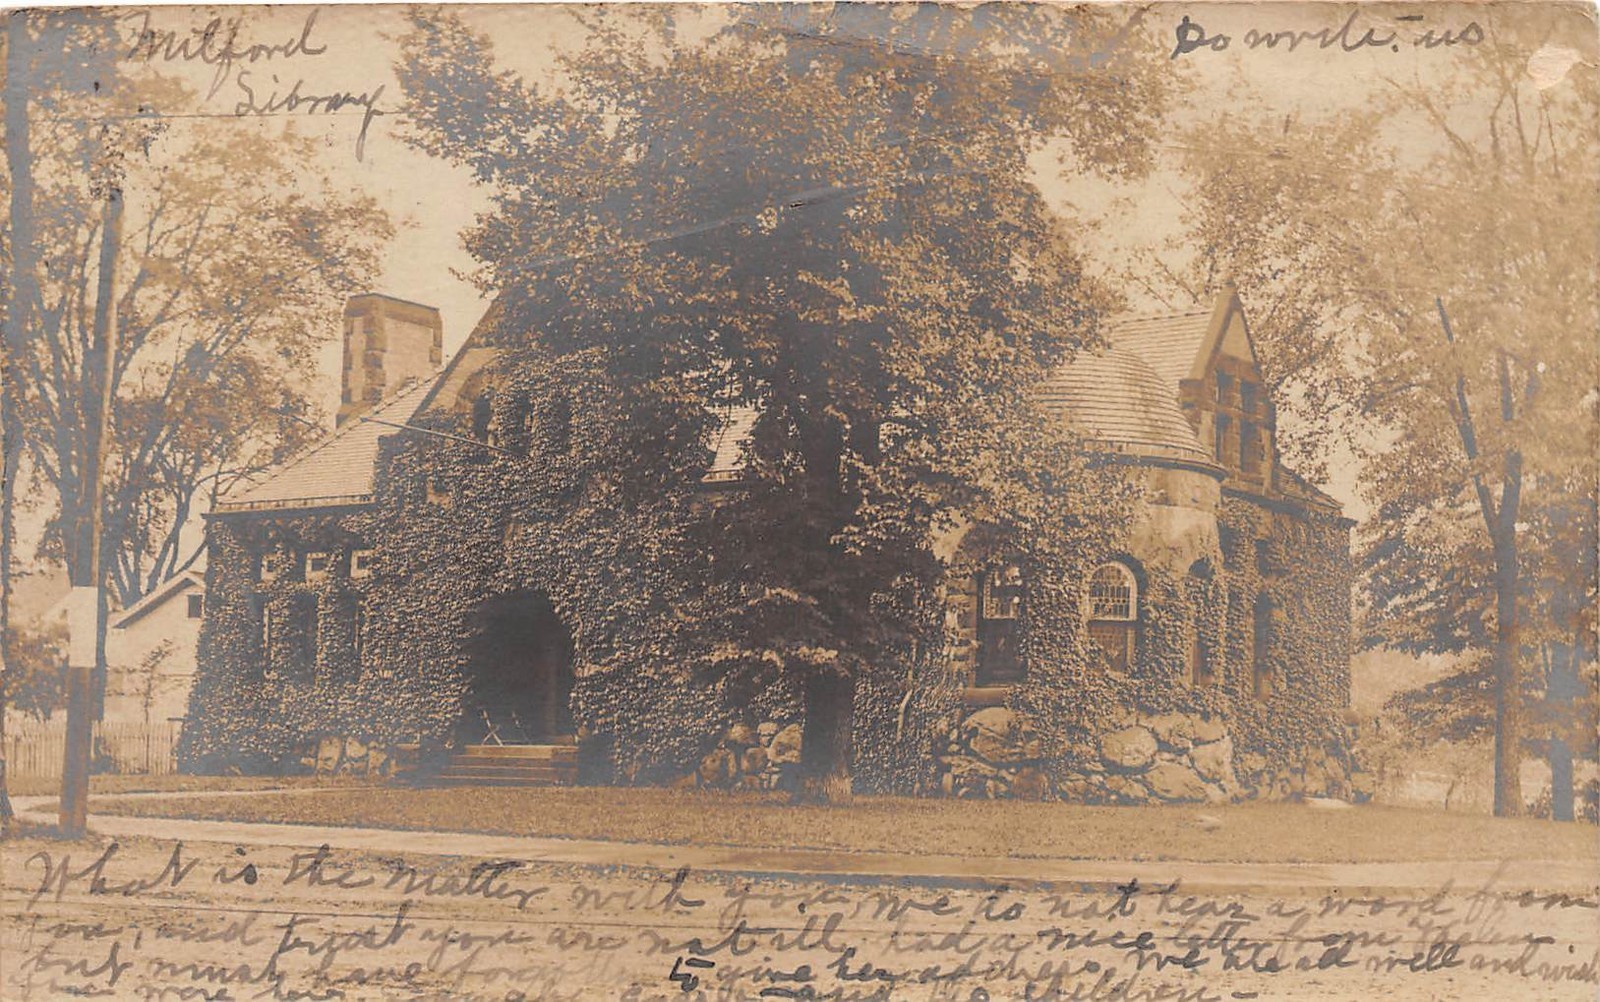 Milford
Library
Do write us
What is the matter with you, we do not hear a word from
you, and trust you are not ill, had a nice letter from Helen
but must have forgotten to give her address. We are all well and wish
you were here, and the children -